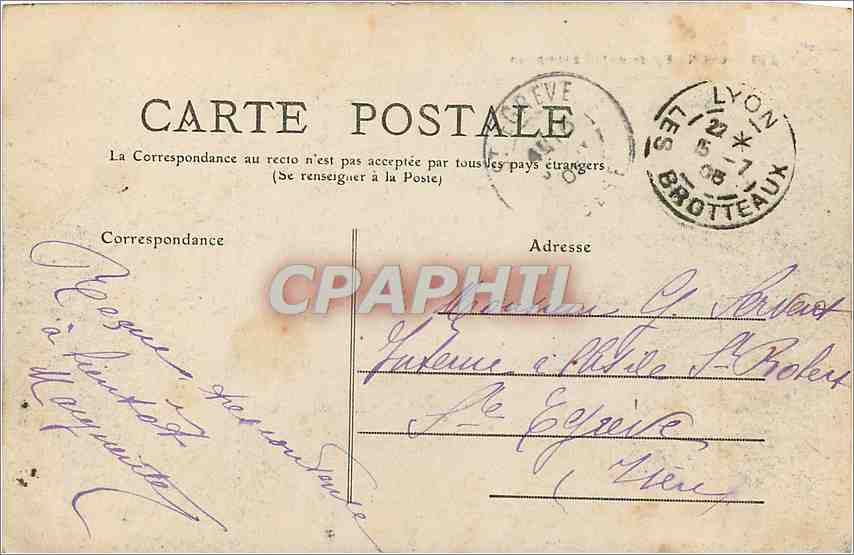 CARTE POSTALE
La Correspondance au recto n'est pas acceptée par tous les pays étrangers
(Se renseigner à la Poste)
Correspondance
Adresse
ST EGREVE
LYON
22 *
5 -7
05
LES BROTTEAUX
CPAPHIL
Reçue, très contente
à bientôt
Marguerite
Monsieur G. Servent
Interne à l'Asile St Robert
St Egrève
(Isère)